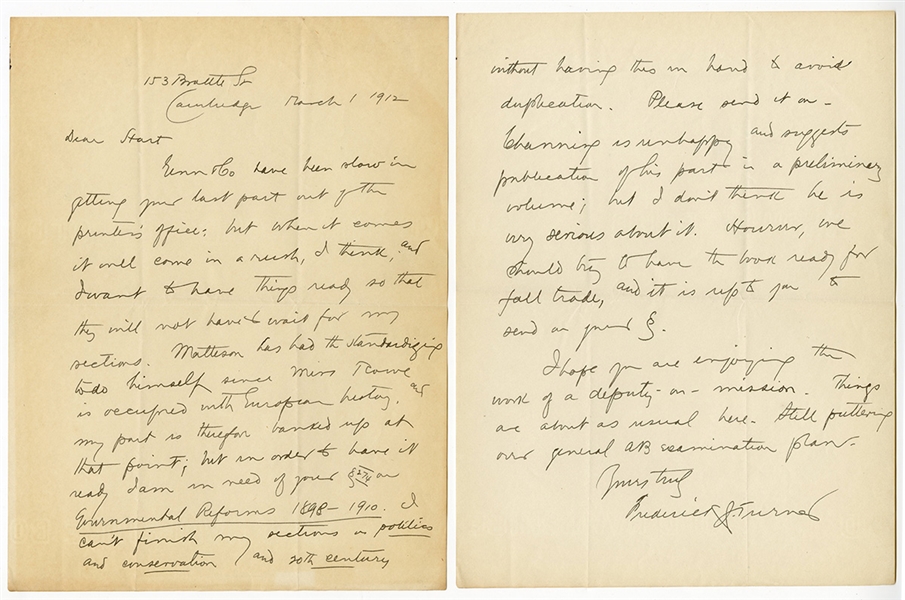 153 Brattle St
Cambridge March 1 1912
Dear Hart
Ginn & Co have been slow in
getting your last part out of the
printer's office; but when it comes
it will come in a rush, I think, and
I want to have things ready so that
they will not have to wait for my
sections. Matteson has had the standardizing
to do himself since Miss Rowe
is occupied with European history, and
my part is therefor banked up at
that point; but in order to have it
ready I am in need of your § 274 on
Governmental Reforms 1898-1910. I
can't finish my sections on politics
and conservation and 20th century
without having this in hand to avoid
duplication. Please send it on -
Channing is unhappy and suggests
publication of his part in a preliminary
volume; but I don't think he is
very serious about it. However, we
should try to have the work ready for
fall trade, and it is up to you to
send on your §.
I hope you are enjoying the
work of a deputy-on-mission. Things
are about as usual here. Still puttering
over general AB examination plan.
Yours truly
Frederick J. Turner